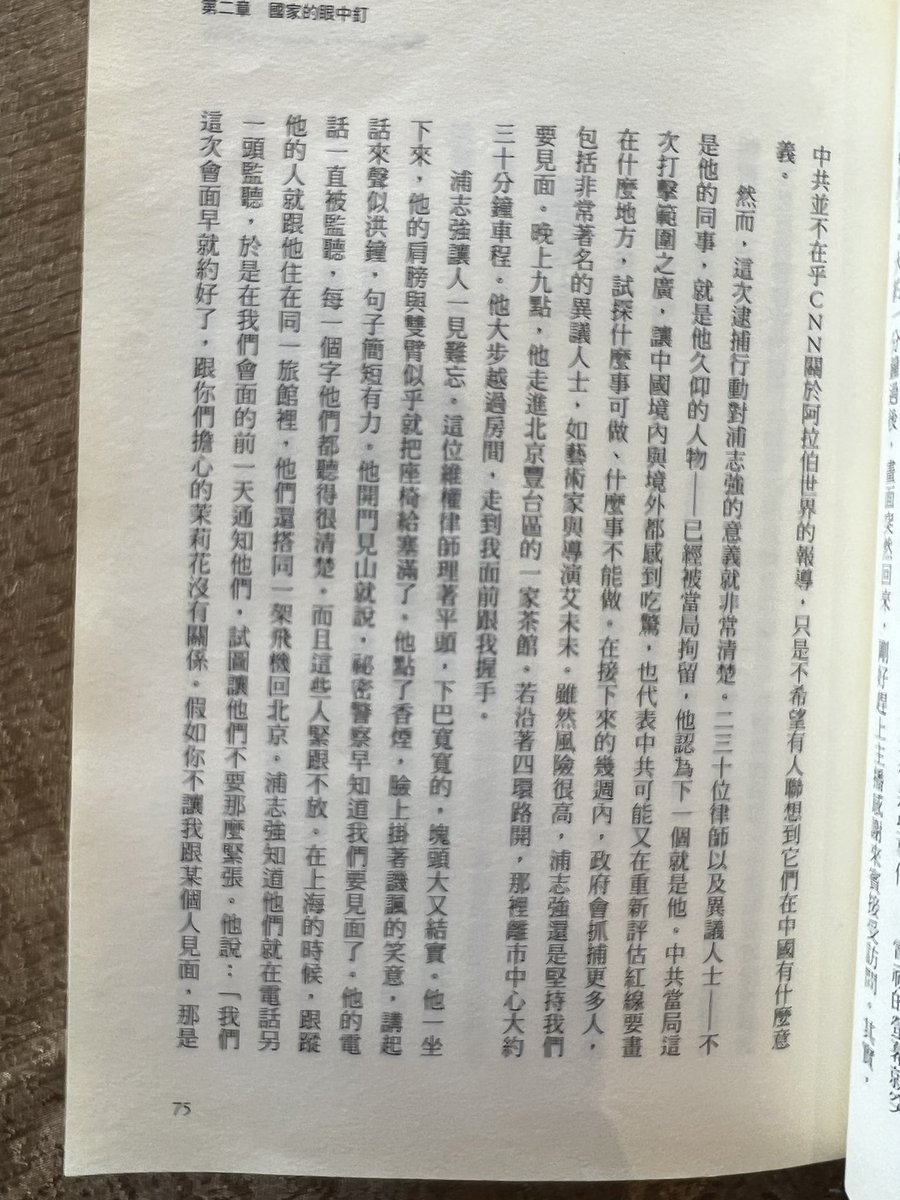 第二章　國家的眼中釘
中共並不在乎CNN關於阿拉伯世界的報導，只是不希望有人聯想到它們在中國有什麼意
義。
然而，這次逮捕行動對浦志強的意義就非常清楚。二三十位律師以及異議人士——不
是他的同事，就是他久仰的人物——已經被當局拘留，他認為下一個就是他。中共當局這
次打擊範圍之廣，讓中國境內與境外都感到吃驚，也代表中共可能又在重新評估紅線要畫
在什麼地方，試探什麼事可做、什麼事不能做。在接下來的幾週內，政府會抓捕更多人，
包括非常著名的異議人士，如藝術家與導演艾未未。雖然風險很高，浦志強還是堅持我們
要見面。晚上九點，他走進北京豐台區的一家茶館。若沿著四環路開，那裡離市中心大約
三十分鐘車程。他大步越過房間，走到我面前跟我握手。
浦志強讓人一見難忘。這位維權律師理著平頭，下巴寬寬的，塊頭大又結實。他一坐
下來，他的肩膀與雙臂似乎就把座椅給塞滿了。他點了香煙，臉上掛著譏諷的笑意，講起
話來聲似洪鐘，句子簡短有力。他開門見山就說，祕密警察早知道我們要見面了。他的電
話一直被監聽，每一個字他們都聽得很清楚。而且這些人緊跟不放。在上海的時候，跟蹤
他的人就跟他住在同一旅館裡，他們還搭同一架飛機回北京。浦志強知道他們就在電話另
一頭監聽，於是在我們會面的前一天通知他們，試圖讓他們不要那麼緊張。他說：「我們
這次會面早就約好了，跟你們擔心的茉莉花沒有關係。假如你不讓我跟某個人見面，那是
75
分鐘過後，畫面突然回來，剛好趕上主播感謝來賓接受訪問。其實，